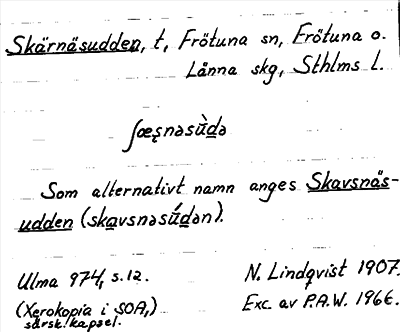 Skärnäsudden, t, Frötuna sn, Frötuna o.
Länna skg, Sthlms l.
ʃæşnəsùdə
Som alternativt namn anges Skavsnäs-
udden (skavsnəsúdən).
Ulma 974, s.12.
N. Lindqvist 1907.
(Xerokopia i SOA,)
Exc. av P.A.W. 1966.
särsk. kapsel.